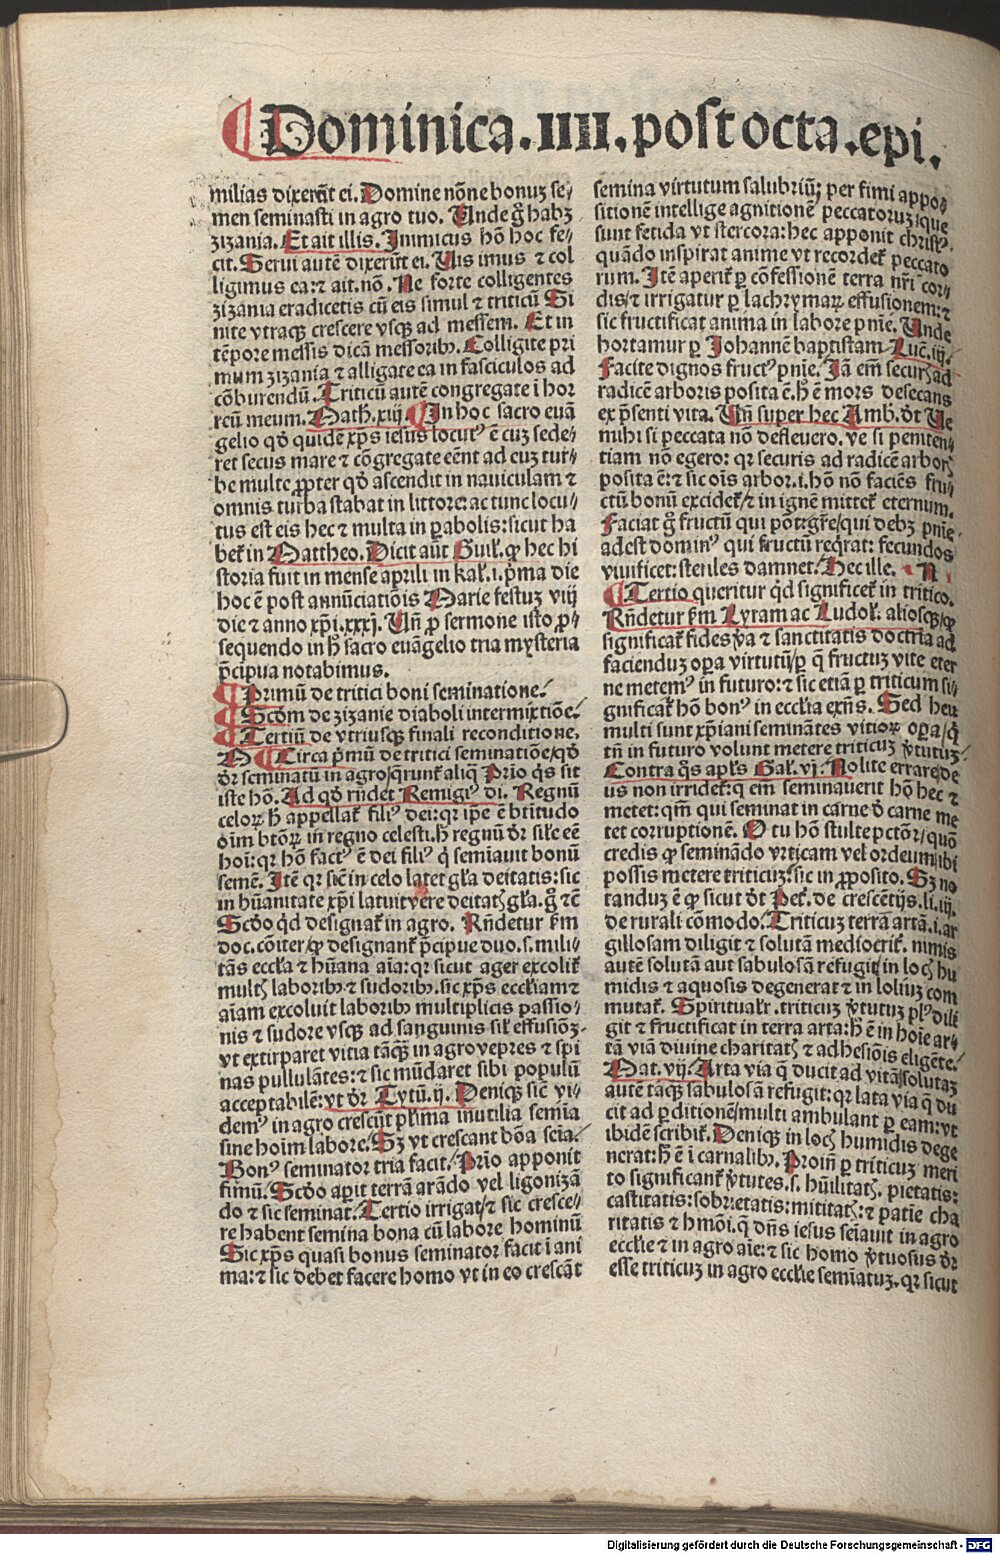 Dominica.IIII.post octa.epi.
milias dixerūt ei. Domine nōne bonuʒ se⸗
men seminasti in agro tuo. Unde gͦ habʒ
zizania. Et ait illis. Inimicus hō hoc fe⸗
cit. Serui autē dixerūt ei. Uis imus ⁊ col
ligimus ea: ⁊ ait. nō. Ne forte colligentes
zizania eradicetis cū eis simul ⁊ triticū Si
nite vtraqꝫ crescere vsqꝫ ad messem. Et in
tēpore messis dicā messoribꝰ. Colligite pri
mum zizania ⁊ alligate ea in fasciculos ad
cōburendū. Triticū autē congregate ī hor
reū meum. Math. xiij. In hoc sacro euā
gelio qd̕ quidē xp̄s iesus locutꝰ ē cuʒ sede⸗
ret secus mare ⁊ cōgregate eēnt ad eū tur⸗
be multe ꝓpter qd̕ ascendit in nauiculam ⁊
omnis turba stabat in littore: ac tunc locu⸗
tus est eis hec ⁊ multa in ꝑabolis: sicut ha
bet᷑ in Mattheo. Dicit aūt Guil. ꝙ hec hi
storia fuit in mense aprili in kal. i. p̄ma die
hoc ē post annūciatiōis Marie festuʒ viij
die ⁊ anno xp̄i. xxxj. Un̄ ꝓ sermone isto ꝓ⸗
sequendo in hͦ sacro euāgelio tria mysteria
p̄cipua notabimus.
Primū de tritici boni seminatione.
Scd̕m de zizanie diaboli intermixtiōe.
Tertiū de vtriusqꝫ finali reconditione.
A Circa p̄mū de tritici seminatiōe/qd̕
dr̄ seminatū in agro/q̄runt᷑ aliq̄ Prīo q̄s sit
iste hō. Ad qd̕ rn̄det Remigiꝰ di. Regnū
celoꝝ hͦ appellat᷑ filiꝰ dei: qr ip̄e ē btītudo
oīm btōꝝ in regno celesti. hͦ regnū dr̄ sil̕e eē
hoī: qr hō factꝰ ē dei filiꝰ q̇ semīauit bonū
semē. Itē qr sic̄ in celo latet gl̕a deitatis: sic
in hūanitate xp̄i latuit vere deitatꝭ gl̕a. gͦ ⁊c̄
Scd̕o qd̕ designat᷑ in agro. Rn̄detur km̄
doc. cōiter/ꝙ designant᷑ p̄cipue duo. s. mili⸗
tās eccl̕ia ⁊ hūana aīa: qr sicut ager excolit᷑
multꝭ laboribꝰ ⁊ sudoribꝰ. sic xp̄s eccl̕iam ⁊
aīam excoluit laboribꝰ multiplicis passio⸗
nis ⁊ sudore vsqꝫ ad sanguinis sil̕ effusiōʒ.
vt extirparet vitia tāqꝫ in agro vepres ⁊ spi
nas pullulātes: ⁊ sic mūdaret sibi populū
acceptabilē: vt dr̄ Tytū. ij. Deniqꝫ sic̄ vi⸗
demꝰ in agro crescūt pl̕ima inutilia semīa
sine hoīm labore. Sʒ vt crescant bōa seīa.
Bonꝰ seminator tria facit. Prīo apponit
fimū. Scd̕o aꝑit terrā arādo vel ligonizā
do ⁊ sic seminat. Tertio irrigat/⁊ sic cresce⸗
re habent semina bona cū labore hominū
Sic xp̄s quasi bonus seminator facit ī ani
ma: ⁊ sic debet facere homo vt in eo crescāt
semina virtutum salubriū; per fimi appo⸗
sitionē intellige agnitionē peccatoruʒ que
sunt fetida vt stercora: hec apponit christꝰ.
quādo inspirat anime vt recordet᷑ peccato
rum. Itē aperit᷑ ꝑ cōfessionē terra nr̄i cor⸗
dis/⁊ irrigatur ꝑ lachrymaꝝ effusionem: ⁊
sic fructificat anima in labore pnīe. Unde
hortamur ꝑ Johannē baptistam Luc̄. iij.
Facite dignos fructꝰ pnīe. Jā em̄ securꝭ ad
radicē arboris posita ē. hͦ ē mors desecans
ex p̄senti vita. Un̄ super hec Amb. dt̄ Ue
mihi si peccata nō defleuero. ve si peniten⸗
tiam nō egero: qr securis ad radicē arborꝭ
posita ē: ⁊ sic oīs arbor. i. hō nō faciēs fru⸗
ctū bonū excidet᷑/⁊ in ignē mittet᷑ eternum.
Faciat gͦ fructū qui pōt: gr̄e/qui debʒ pnīe
adest dominꝰ qui fructū reqͥrat: fecundos
viuificet: steriles damnet. Hec ille. B
Tertio queritur qd̕ significet᷑ in tritico.
Rn̄detur km̄ Lyram ac Ludol. aliosqꝫ/ꝙ
significat᷑ fides v̄a ⁊ sanctitatis doctrīa ad
faciendʒ oꝑa virtutū/ꝑ q̄ fructuʒ vite eter
ne metemꝰ in futuro: ⁊ sic etiā ꝑ triticum si⸗
gnificat᷑ hō bonꝰ in eccl̕ia exn̄s. Sed heu
multi sunt xp̄iani seminātes vitioꝝ oꝑa/q̇
tn̄ in futuro volunt metere triticuʒ v̄tutuʒ.
Contra q̄s apl̕s Gal̕. vj. Nolite errare/de
us non irridet᷑: q̄ em̄ seminauerit hō hec ⁊
metet: qm̄ qui seminat in carne d̕ carne me
tet corruptionē. O tu hō stulte pctōr/quō
credis ꝙ seminādo vrticam vel ordeum/tibi
possis metere triticuʒ: sic in ꝓposito. Sʒ no
tanduʒ ē ꝙ sicut dt̄ Pet᷑. de crescētijs. li. iij.
de rurali cōmodo. Triticuʒ terrā artā. i. ar
gillosam diligit ⁊ solutā mediocrit᷑. nimis
autē solutā aut sabulosā refugit/in locꝭ hu
midis ⁊ aquosis degenerat ⁊ in loliuʒ com
mutat᷑. Spiritualr̄. triticuʒ v̄tutuʒ plꝰ dili
git ⁊ fructificat in terra arta: hͦ ē in hoīe ar⸗
tā viā diuine charitatꝭ ⁊ adhesiōis eligēte.
Mat. vij. Arta via q̄ ducit ad vitā/solutaʒ
autē tāqꝫ sabulosā refugit: qr lata via q̄ du
cit ad ꝑditionē/multi ambulant ꝑ eam: vt
ibidē scribit᷑. Deniqꝫ in locꝭ humidis dege
nerat: hͦ ē ī carnalibꝰ. Proin̄ ꝑ triticuʒ meri
to significant᷑ v̄tutes. s. hūilitatꝭ. pietatis:
castitatis: sobrietatis: mititatꝭ: ⁊ patīe cha
ritatis ⁊ hmōi. q̄ dn̄s iesus seīauit in agro
eccl̕ie ⁊ in agro aīe: ⁊ sic homo v̄tuosus dr̄
esse triticuʒ in agro eccl̕ie semīatuʒ. qr sicut
Digitalisierung gefördert durch die Deutsche Forschungsgemeinschaft - DFG